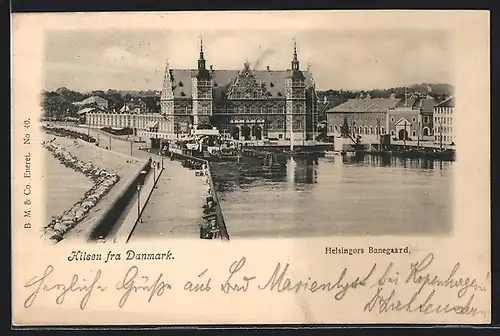 B. M. & Co. Eneret. No 40.
Hilsen fra Danmark.
Helsingørs Banegaard.
Herzlichen Grüße aus Bad Marienlyst bei Kopenhagen!